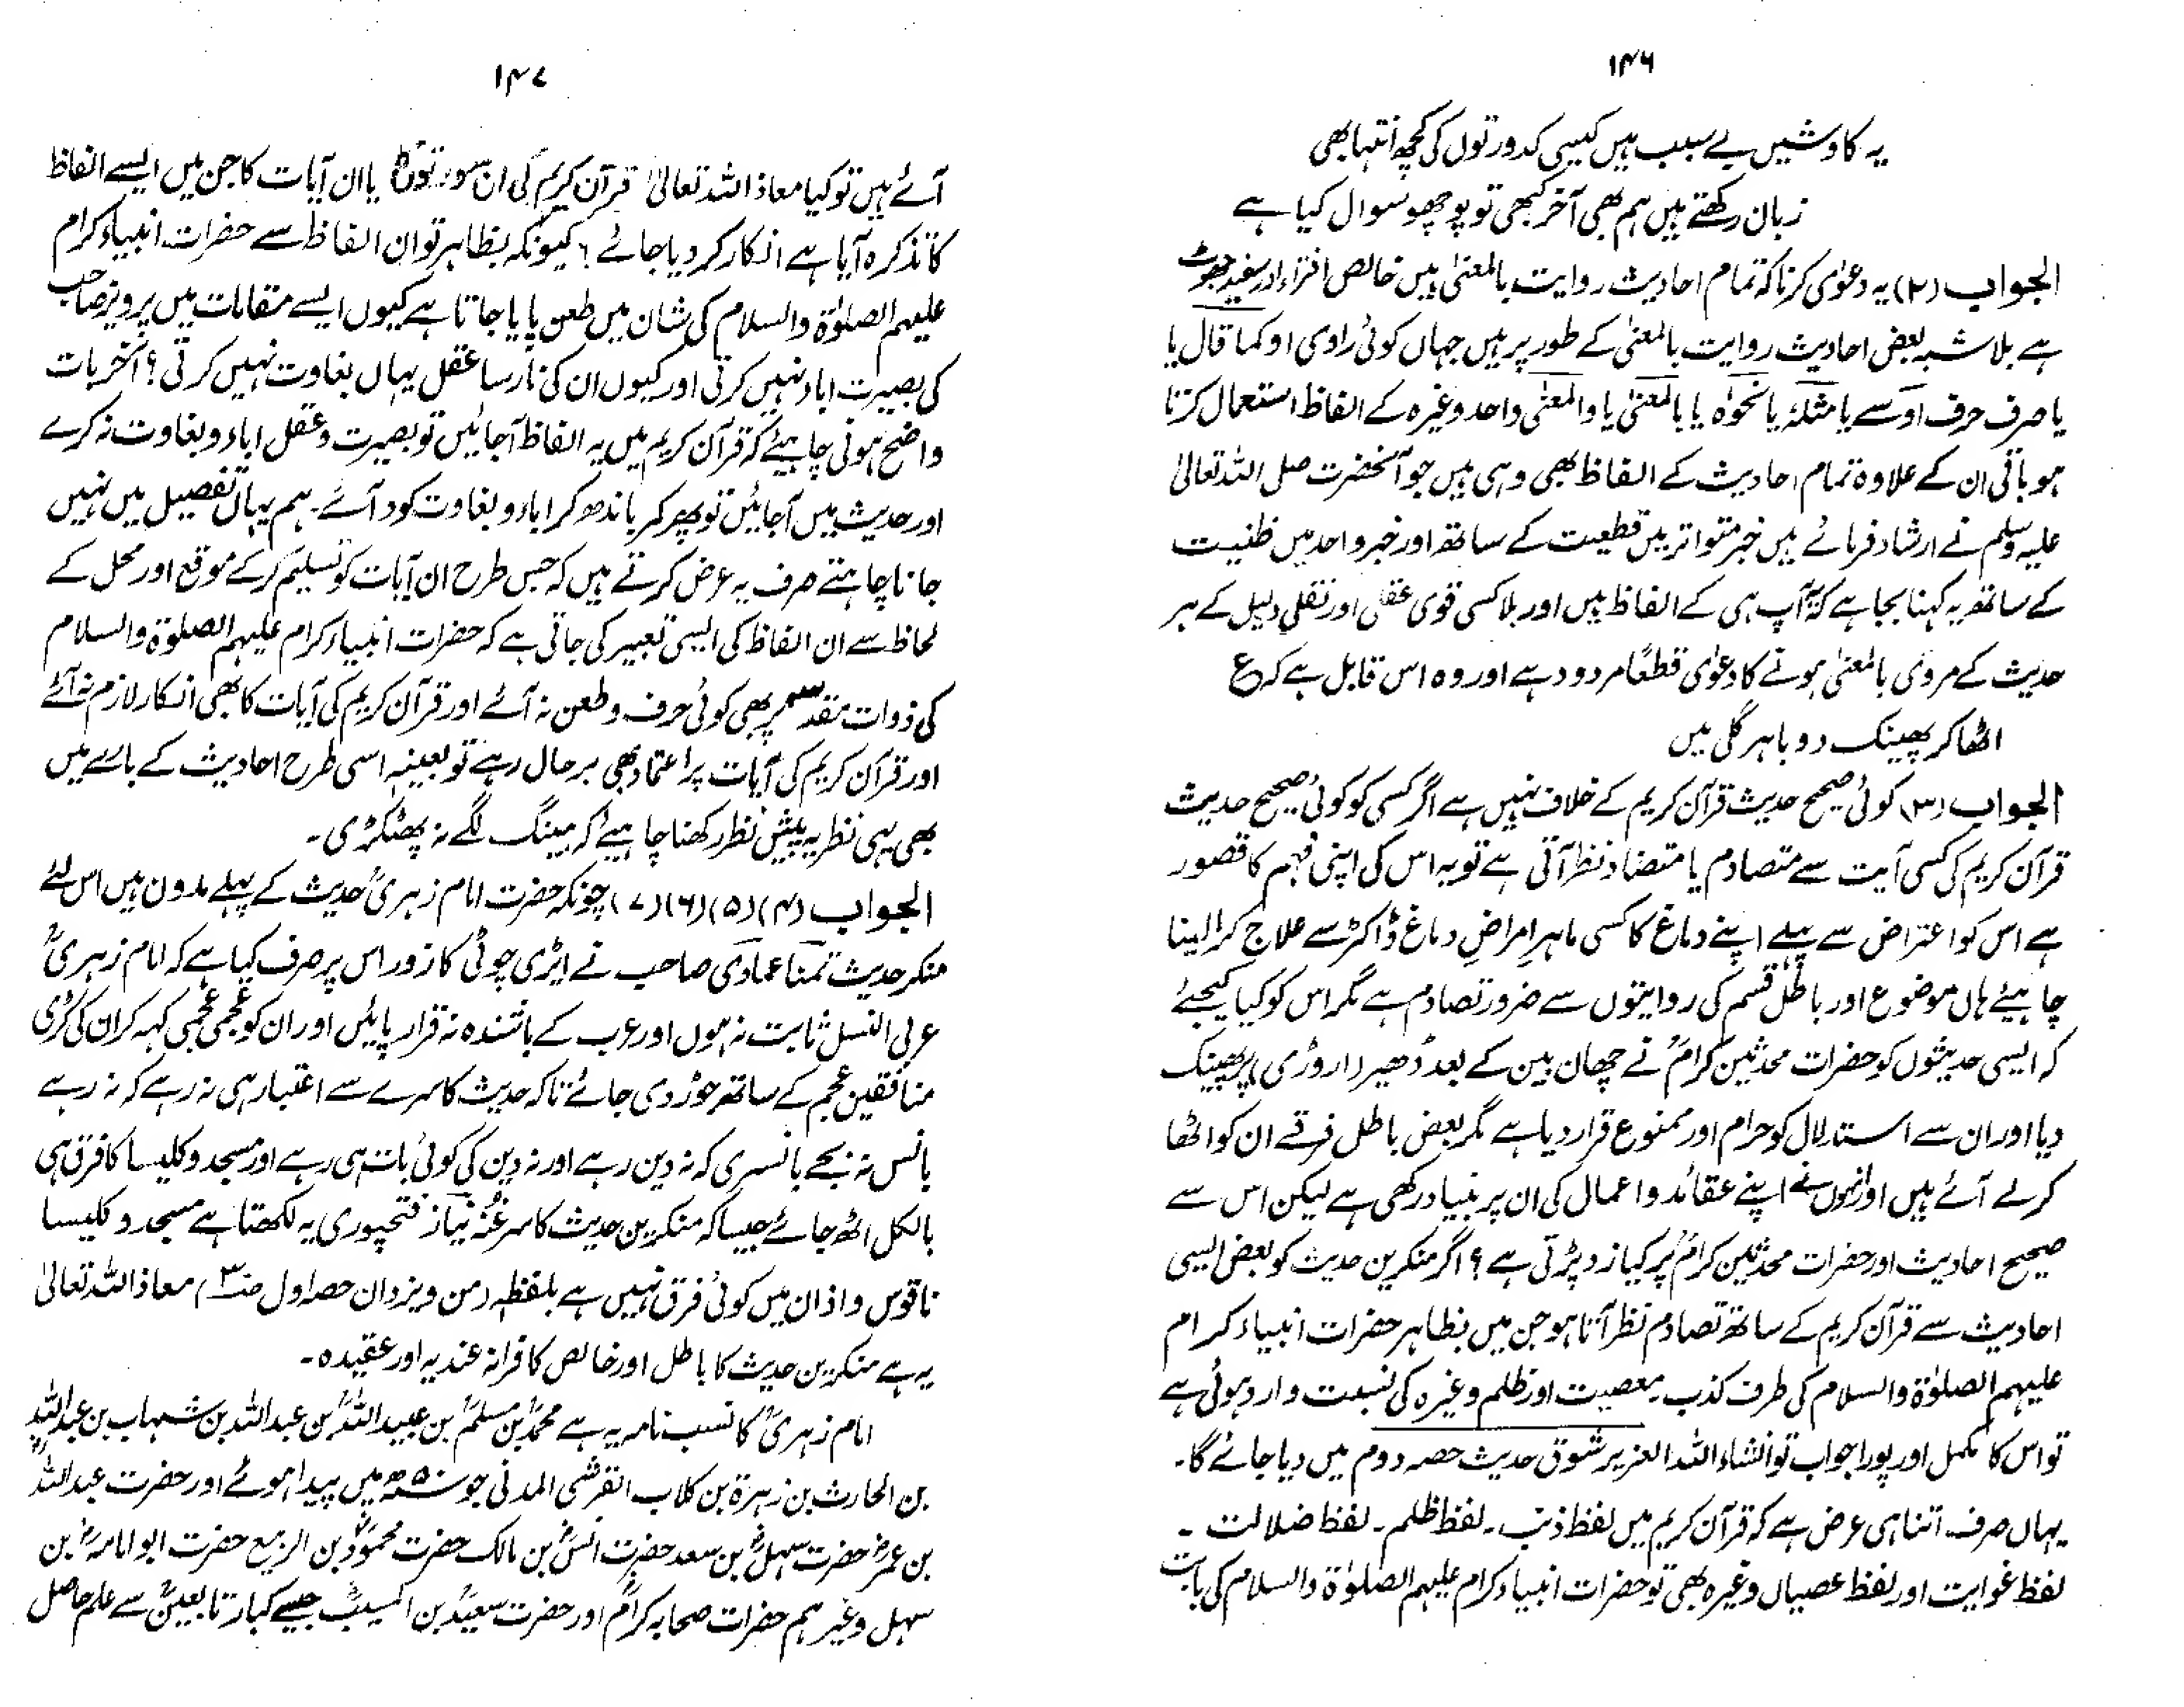 ۱۴۶
یہ کاوشیں بے سبب ہیں کیسی کدورتوں کی کچھ انتہا بھی
زبان رکھتے ہیں ہم بھی آخر کبھی تو پوچھو سوال کیا ہے
الجواب (۲) یہ دعوٰی کرنا کہ تمام احادیث روایت بالمعنیٰ ہیں خالص افتراء اور سفید جھوٹ
ہے بلاشبہ بعض احادیث روایت بالمعنیٰ کے طور پر ہیں جہاں کوئی راوی اوکما قال یا
یا صرف حرف اَوْ سے یا مثلہٗ یا نحوہٗ یا بالمعنیٰ یا والمعنیٰ واحد وغیرہ کے الفاظ استعمال کرتا
ہو باقی ان کے علاوہ تمام احادیث کے الفاظ بھی وہی ہیں جو آنحضرت صلی اللہ تعالیٰ
علیہ وسلم نے ارشاد فرمائے ہیں خبر متواتر میں قطعیت کے ساتھ اور خبر واحد میں ظنیت
کے ساتھ یہ کہنا بجا ہے کہ آپ ہی کے الفاظ ہیں اور بلا کسی قوی عقلی اور نقلی دلیل کے ہر
حدیث کے مروی بالمعنیٰ ہونے کا دعوٰی قطعًا مردود ہے اور وہ اس قابل ہے کہ ع
اٹھا کر پھینک دو باہر گلی میں
الجواب (۳) کوئی صحیح حدیث قرآن کریم کے خلاف نہیں ہے اگر کسی کو کوئی صحیح حدیث
قرآن کریم کی کسی آیت سے متصادم یا متضاد نظر آتی ہے تو یہ اس کی اپنی فہم کا قصور
ہے اس کو اعتراض سے پہلے اپنے دماغ کا کسی ماہر امراضِ دماغ ڈاکٹر سے علاج کرا لینا
چاہیئے ہاں موضوع اور باطل قسم کی روایتوں سے ضرور تصادم ہے مگر اس کو کیا کیجئے
کہ ایسی حدیثوں کو حضرات محدثین کرامؒ نے چھان بین کے بعد ڈھیر (اروڑی) پر پھینک
دیا اور ان سے استدلال کو حرام اور ممنوع قرار دیا ہے مگر بعض باطل فرقے ان کو اٹھا
کر لے آئے ہیں اور انہوں نے اپنے عقائد و اعمال کی ان پر بنیاد رکھی ہے لیکن اس سے
صحیح احادیث اور حضرات محدثین کرامؒ پر کیا زد پڑتی ہے ؟ اگر منکرین حدیث کو بعض ایسی
احادیث سے قرآن کریم کے ساتھ تصادم نظر آتا ہو جن میں بظاہر حضرات انبیاء کرام
علیہم الصلوٰۃ والسلام کی طرف کذب۔ معصیت اور ظلم وغیرہ کی نسبت وارد ہوئی ہے
تو اس کا مکمل اور پورا جواب تو انشاء اللہ العزیز شوق حدیث حصہ دوم میں دیا جائے گا۔
یہاں صرف اتنا ہی عرض ہے کہ قرآن کریم میں لفظ ذنب۔ لفظ ظلم۔ لفظ ضلالت ۔
لفظ غوایت اور لفظ عصیان وغیرہ بھی تو حضرات انبیاء کرام علیہم الصلوٰۃ والسلام کی بابت
۱۴۷
آئے ہیں تو کیا معاذ اللہ تعالیٰ قرآن کریم کی ان سورتوں کا یا ان آیات کا جن میں ایسے الفاظ
کا تذکرہ آیا ہے انکار کر دیا جائے ؟ کیونکہ بظاہر تو ان الفاظ سے حضرات انبیاء کرام
علیہم الصلوٰۃ والسلام کی شان میں طعن پایا جاتا ہے کیوں ایسے مقامات میں پرویز صاحب
کی بصیرت اباء نہیں کرتی اور کیوں ان کی نارسا عقل یہاں بغاوت نہیں کرتی ؟ آخر بات
واضح ہونی چاہیئے کہ قرآن کریم میں یہ الفاظ آجائیں تو بصیرت و عقل اباء و بغاوت نہ کرے
اور حدیث میں آجائیں تو پھر کمر باندھ کر اباء و بغاوت کود آئے۔ ہم یہاں تفصیل میں نہیں
جانا چاہتے صرف یہ عرض کرتے ہیں کہ جس طرح ان آیات کو تسلیم کرکے موقع اور محل کے
لحاظ سے ان الفاظ کی ایسی تعبیر کی جاتی ہے کہ حضرات انبیاء کرام علیہم الصلوٰۃ والسلام
کی ذوات مقدسہ پر بھی کوئی حرف و طعن نہ آئے اور قرآن کریم کی آیات کا بھی انکار لازم نہ آئے
اور قرآن کریم کی آیات پر اعتماد بھی برحال رہے تو بعینہٖ اسی طرح احادیث کے بارے میں
بھی یہی نظریہ پیش نظر رکھنا چاہیئے کہ ہینگ لگے نہ پھٹکڑی۔
الجواب (۴) (۵) (۶) (۷) چونکہ حضرت امام زہریؒ حدیث کے پہلے مدون ہیں اس لئے
منکر حدیث تمنا عمادی صاحب نے ایڑی چوٹی کا زور اس پر صرف کیا ہے کہ امام زہریؒ
عربی النسل ثابت نہ ہوں اور عرب کے باشندہ نہ قرار پائیں اور ان کو عجمی عجمی کہہ کر ان کی کڑی
منافقین عجم کے ساتھ جوڑ دی جائے تاکہ حدیث کا سرے سے اعتبار ہی نہ رہے کہ نہ رہے
بانس نہ بجے بانسری کہ نہ دین رہے اور نہ دین کی کوئی بات ہی رہے اور مسجد و کلیسا کا فرق ہی
بالکل اٹھ جائے جیسا کہ منکرین حدیث کا سرغنہ نیاز فتحپوری یہ لکھتا ہے مسجد و کلیسا
ناقوس و اذان میں کوئی فرق نہیں ہے بلفظہٖ (من ویزدان حصہ اول ) معاذ اللہ تعالیٰ
یہ ہے منکرین حدیث کا باطل اور خالص کافرانہ عندیہ اور عقیدہ۔
امام زہریؒ کا نسب نامہ یہ ہے محمدؒ بن مسلمؒ بن عبید اللہؒ بن عبداللہ بن شہاب بن عبداللہ
بن الحارث بن زہرۃ بن کلاب القرشی المدنی جو ۵۰ھ میں پیدا ہوئے اور حضرت عبداللہؓ
بن عمرؓ حضرت سہلؓ بن سعد حضرت انسؓ بن مالک حضرت محمودؓ بن الربیع حضرت ابو امامہؓ بن
سہل وغیرہم حضرات صحابہ کرامؓ اور حضرت سعیدؒ بن المسیبؒ جیسے کبار تابعینؒ سے علم حاصل